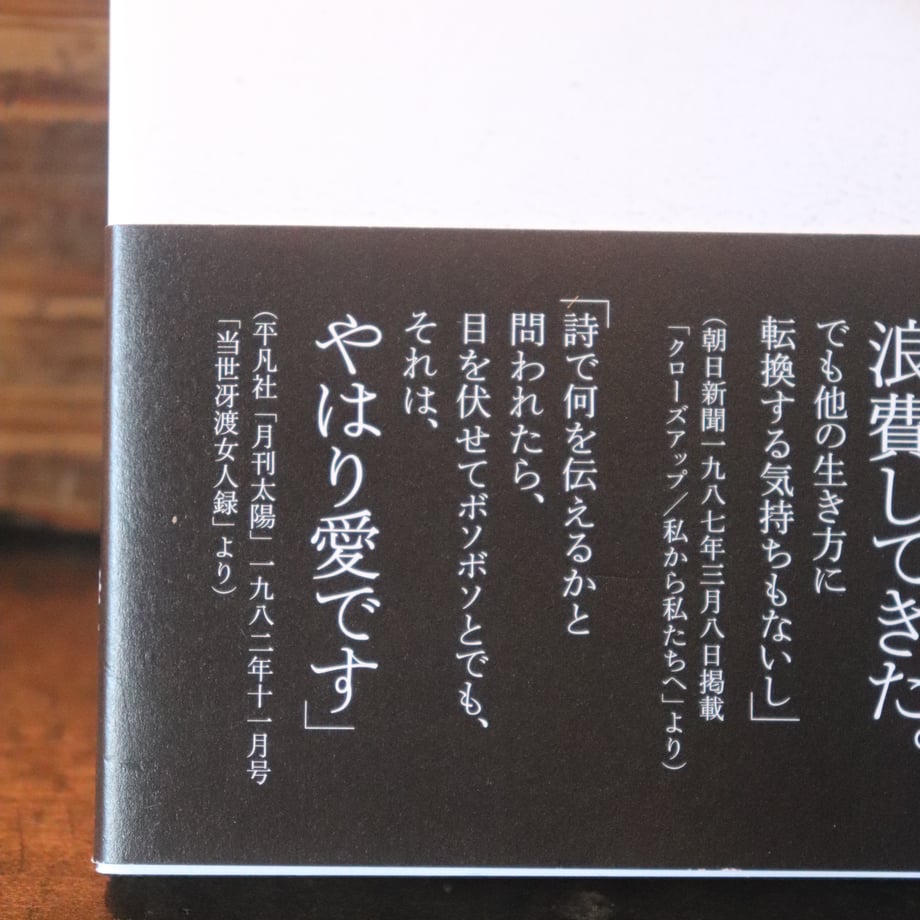 浪費してきた。
でも他の生き方に
転換する気持ちもないし」
（朝日新聞一九八七年三月八日掲載
「クローズアップ／私から私たちへ」より）
「詩で何を伝えるかと
問われたら、
目を伏せてボソボソとでも、
それは、
やはり愛です」
（平凡社「月刊太陽」一九八二年十一月号
「当世冴渡女人録」より）